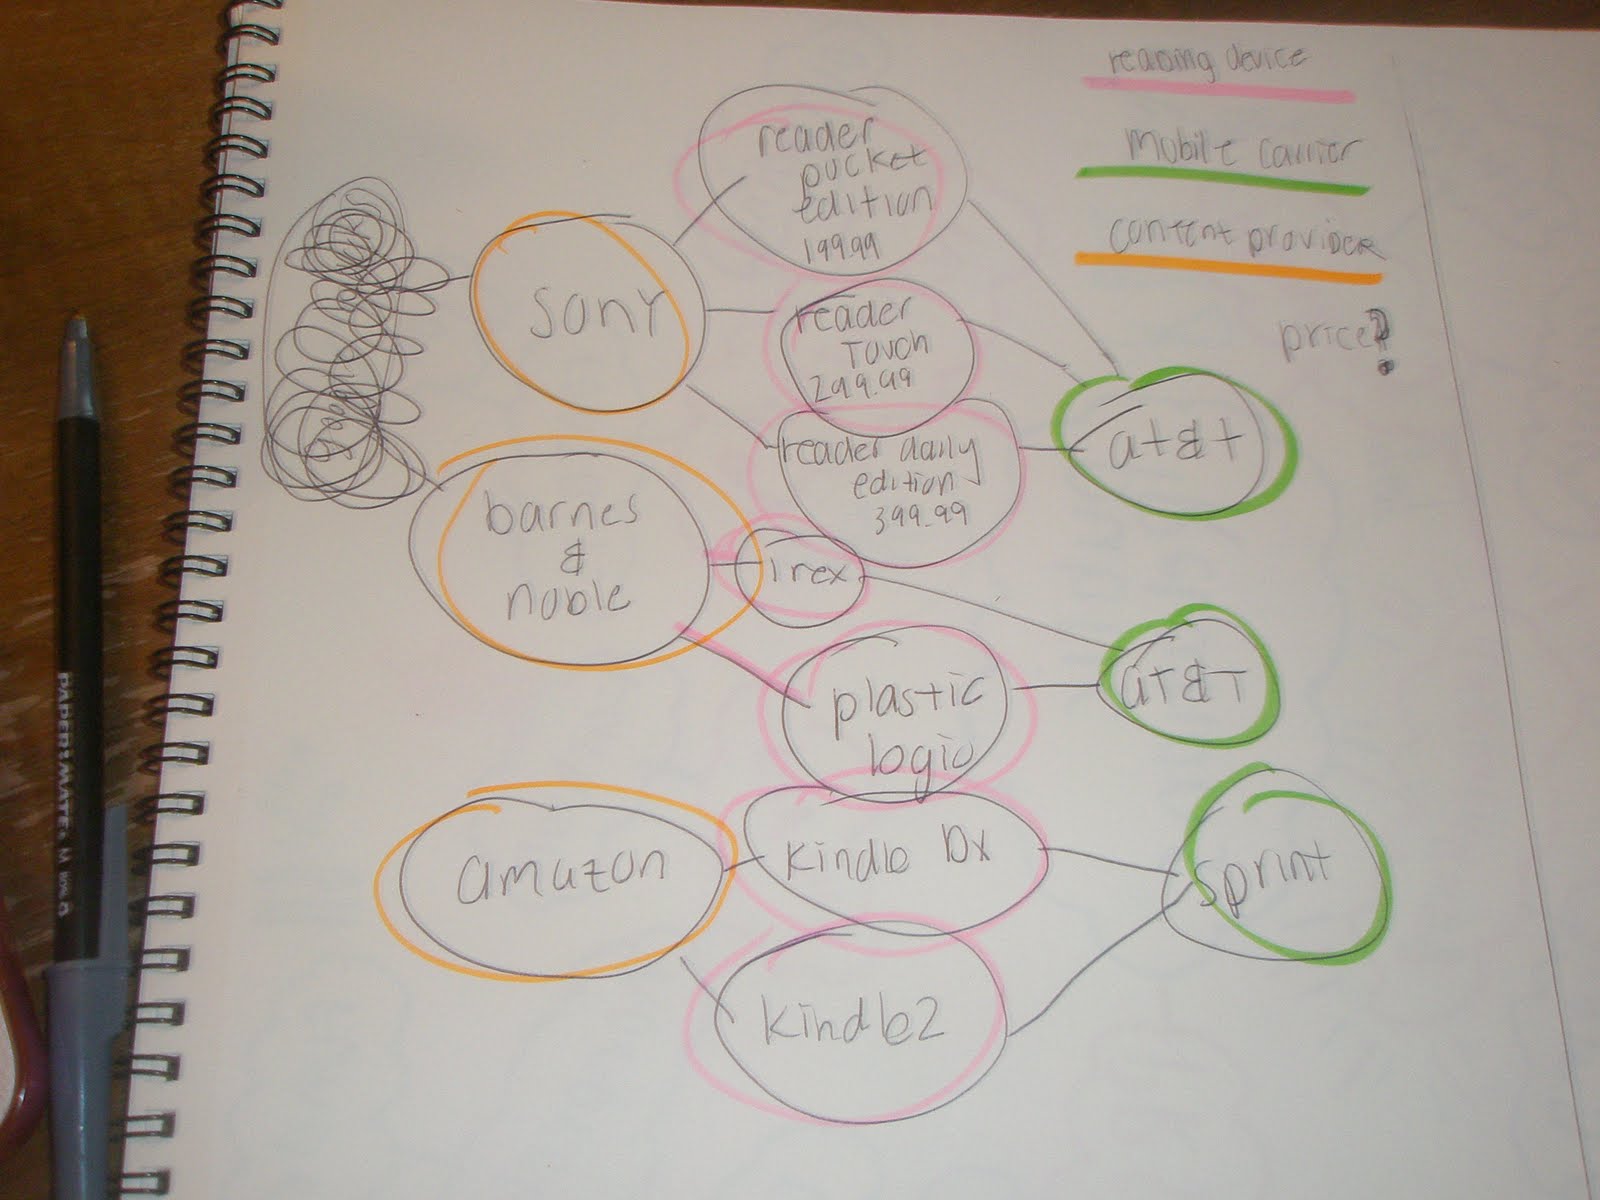 reading device
mobile carrier
content provider
price?
reader
pocket
edition
199.99
sony
reader
touch
299.99
reader daily
edition
399.99
at&t
barnes
&
noble
irex
plastic
logic
at&t
amazon
kindle DX
sprint
kindle2
PAPER:MATE